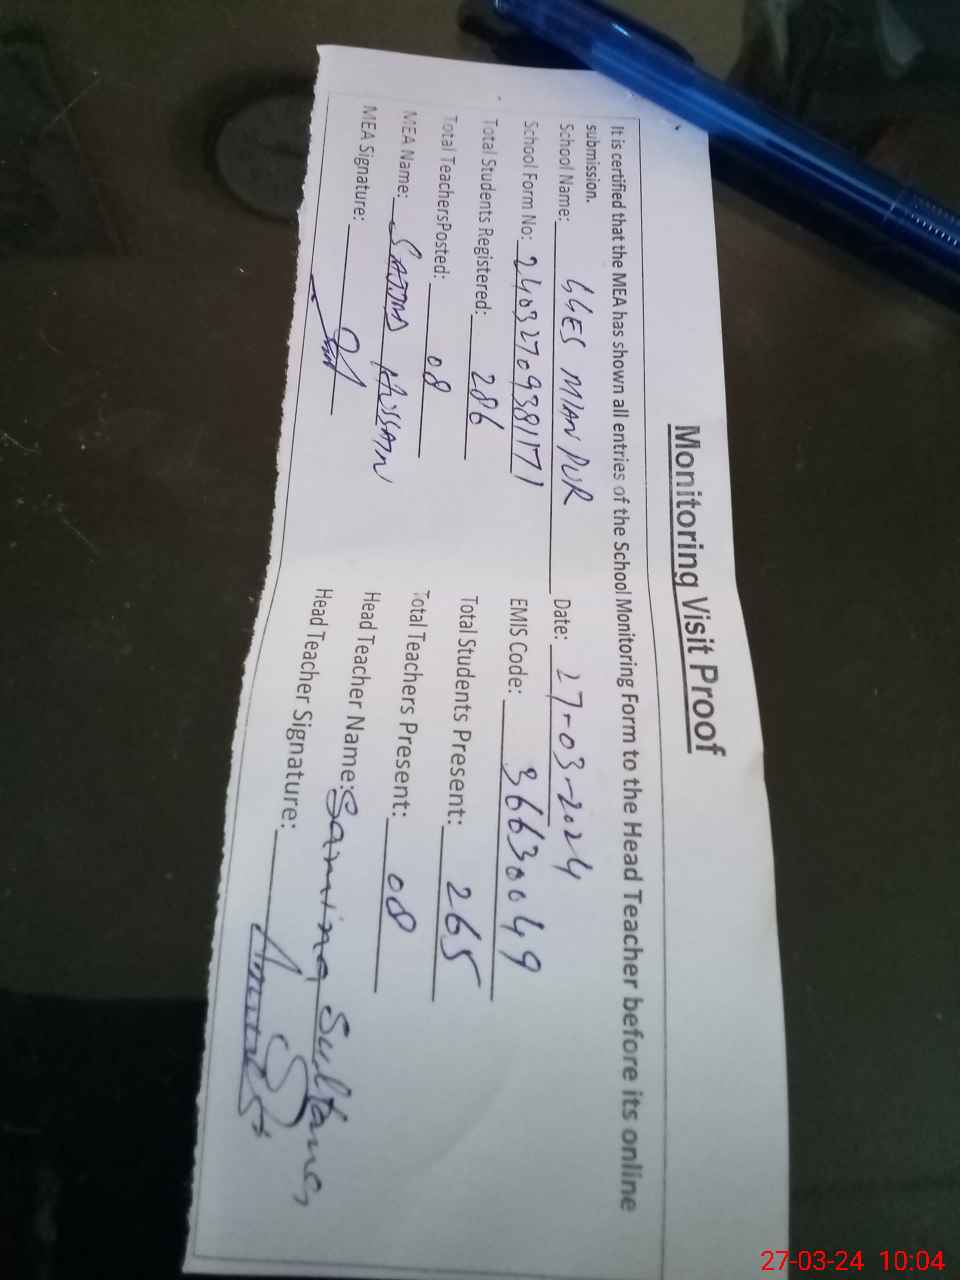 Monitoring Visit Proof
It is certified that the MEA has shown all entries of the School Monitoring Form to the Head Teacher before its online
submission.
School Name: GGES MIAN PUR Date: 27-03-2024
School Form No: 240327093811171 EMIS Code: 36630049
Total Students Registered: 286 Total Students Present: 265
Total TeachersPosted: 08 Total Teachers Present: 08
MEA Name: SAJJAD HUSSAIN Head Teacher Name: Samina Sultana
MEA Signature: Head Teacher Signature:
27-03-24 10:04